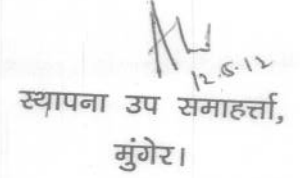 12.5.12
स्थापना उप समाहर्त्ता,
मुंगेर।